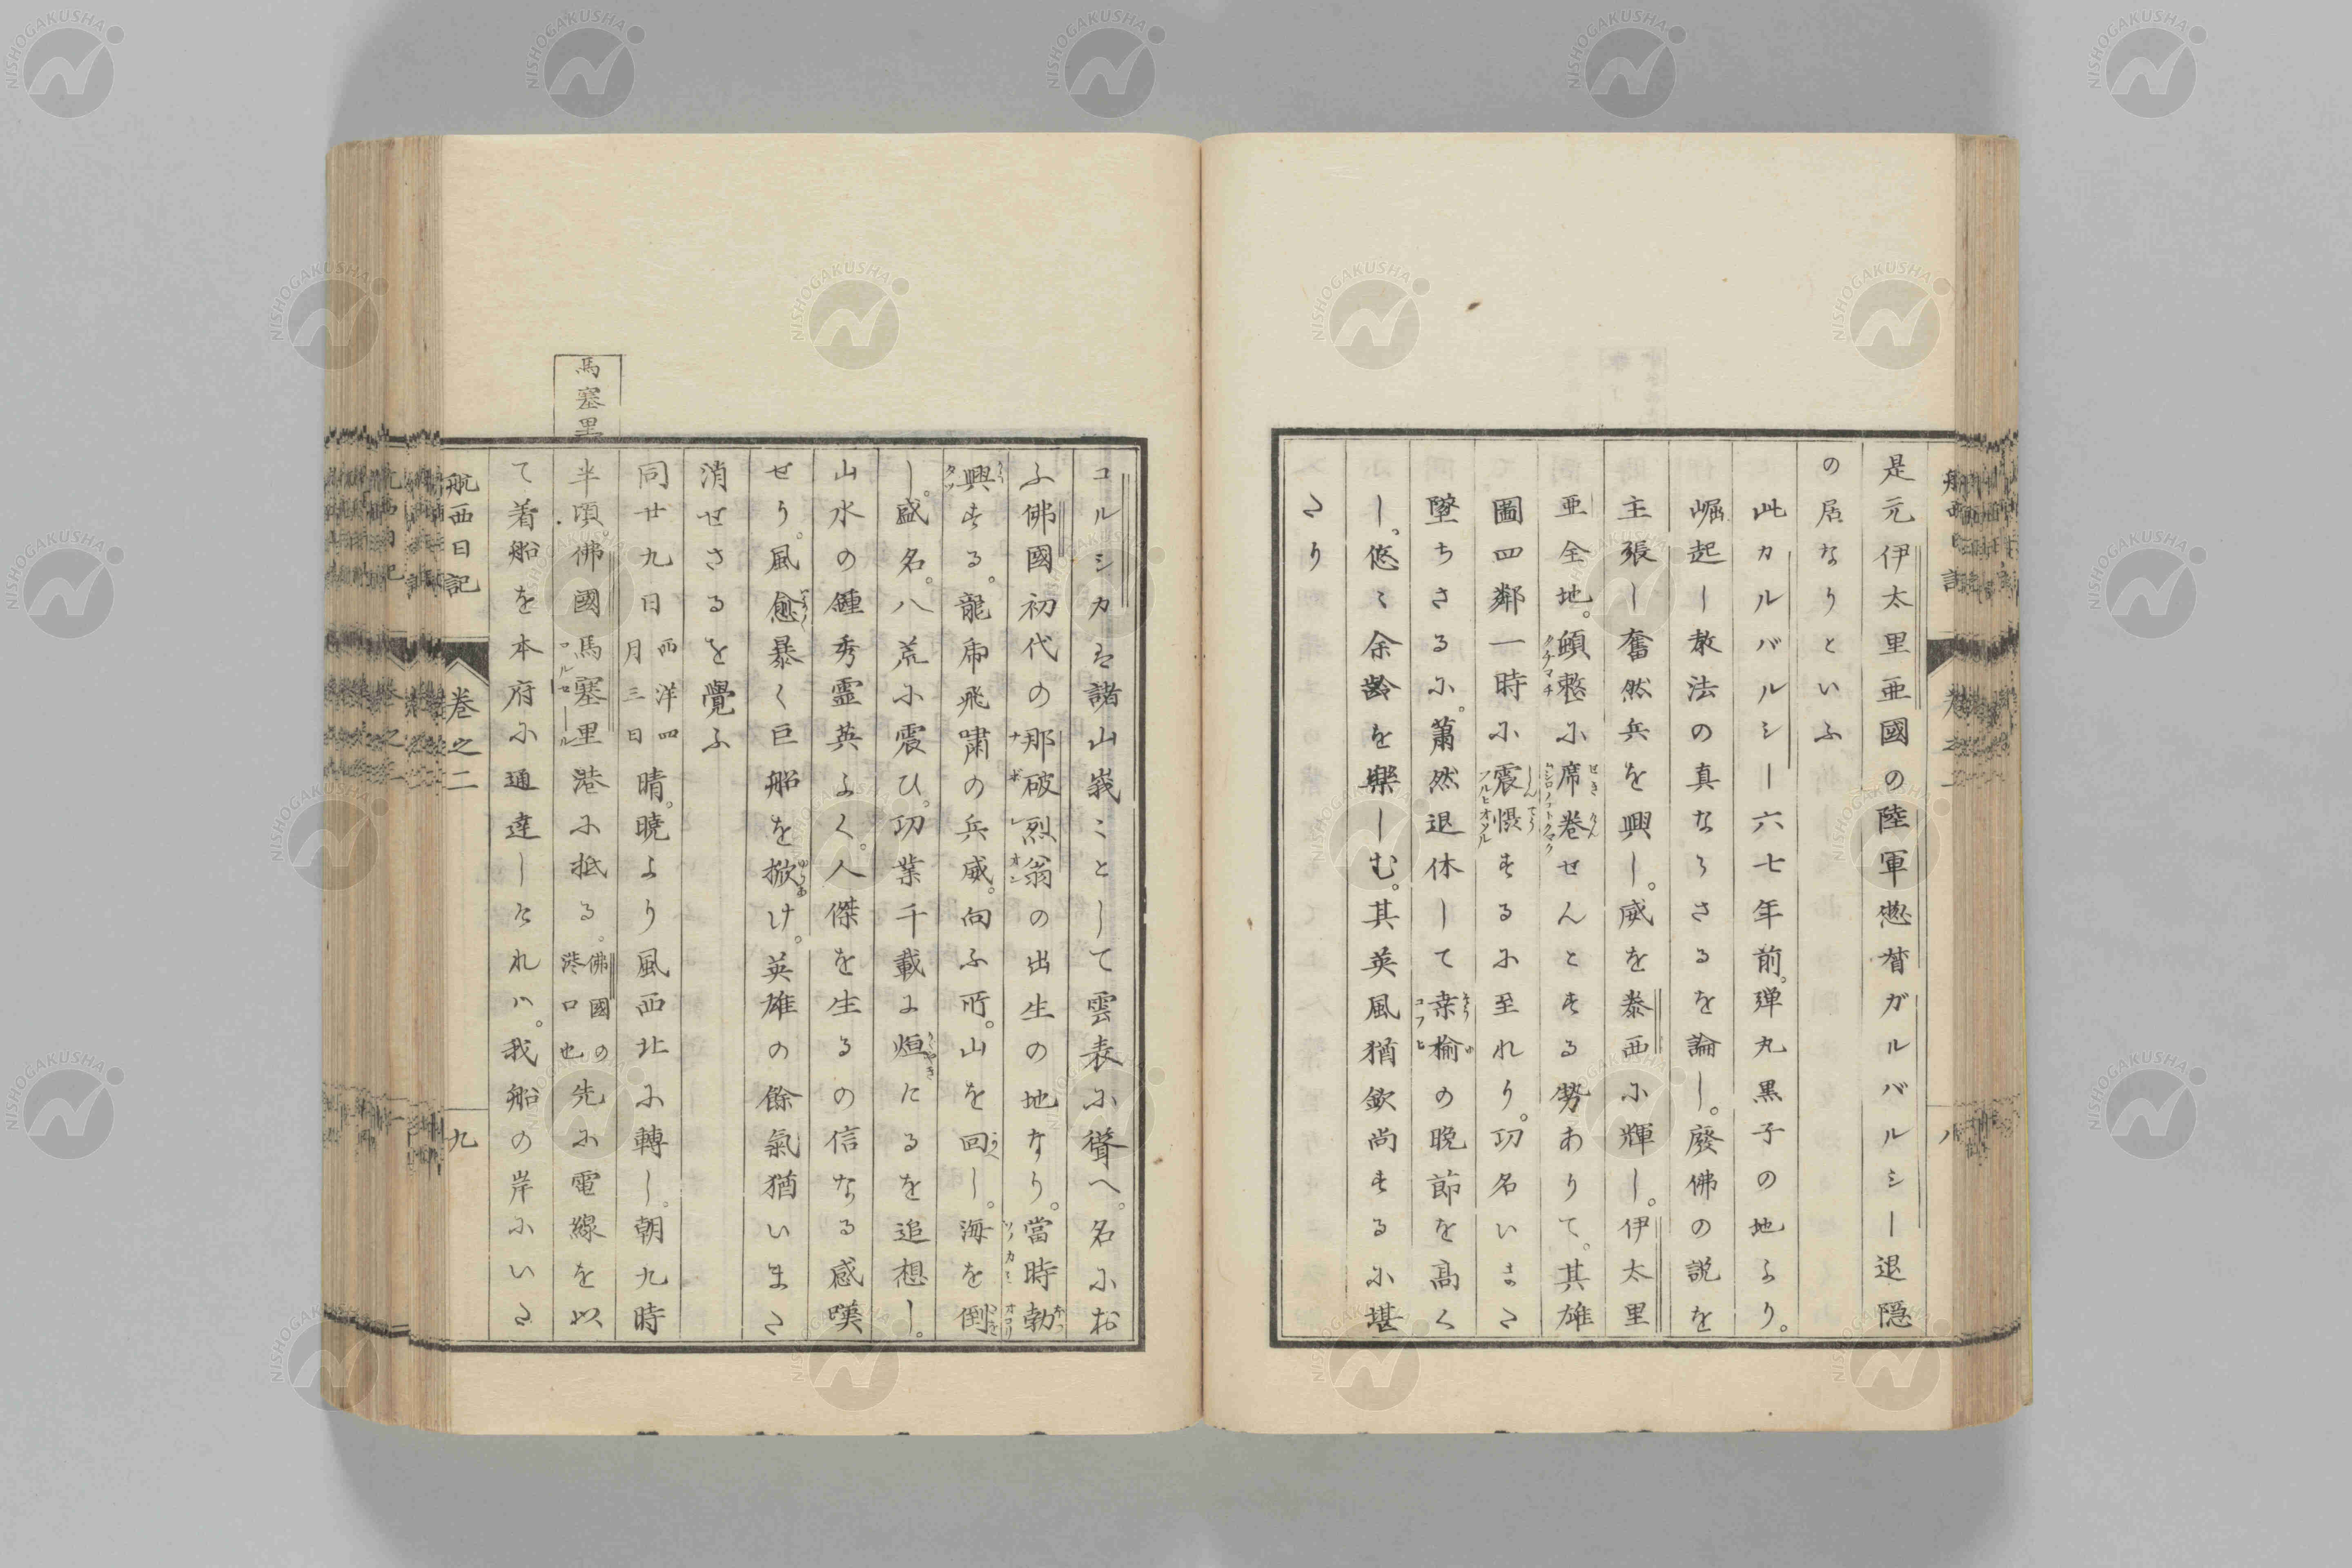 是元伊太里亜國の陸軍惣督ガルバルシー退隠
の居なりといふ
此カルバルシー六七年前。弾丸黒子の地より。
崛起し教法の真ならさるを論し。廢佛の説を
主張し奮然兵を興し。威を泰西に輝し。伊太里
亜全地。頓に席巻せんとする勢ありて。其雄
圖四鄰一時に震慑するに至れり。功名いまた
墜ちさるに。蕭然退休して桑榆の晩節を高く
し。悠〻余齢を樂しむ。其英風猶欽尚するに堪
たり
航西日記 巻之二 八
コルシカは諸山峩ことして雲表に聳へ。名にお
ふ佛國初代の那破烈翁の出生の地なり。當時勃
興する。龍乕飛嘯の兵威。向ふ所。山を回し。海を倒
し。盛名。八荒に震ひ。功業千載に烜たるを追想し。
山水の鍾秀霊英よく。人傑を生るの信なる感嘆
せり。風愈暴く巨船を掀け。英雄の餘氣猶いまた
消せさるを覺ふ
同廿九日 西洋四月三日 晴。曉より風西北に轉し。朝九時
馬塞里
半頃。佛國馬塞里港に抵る。佛國の港口也 先に電線を以
て着船を本府に通達しけれハ。我船の岸にいた
航西日記 巻之二 九